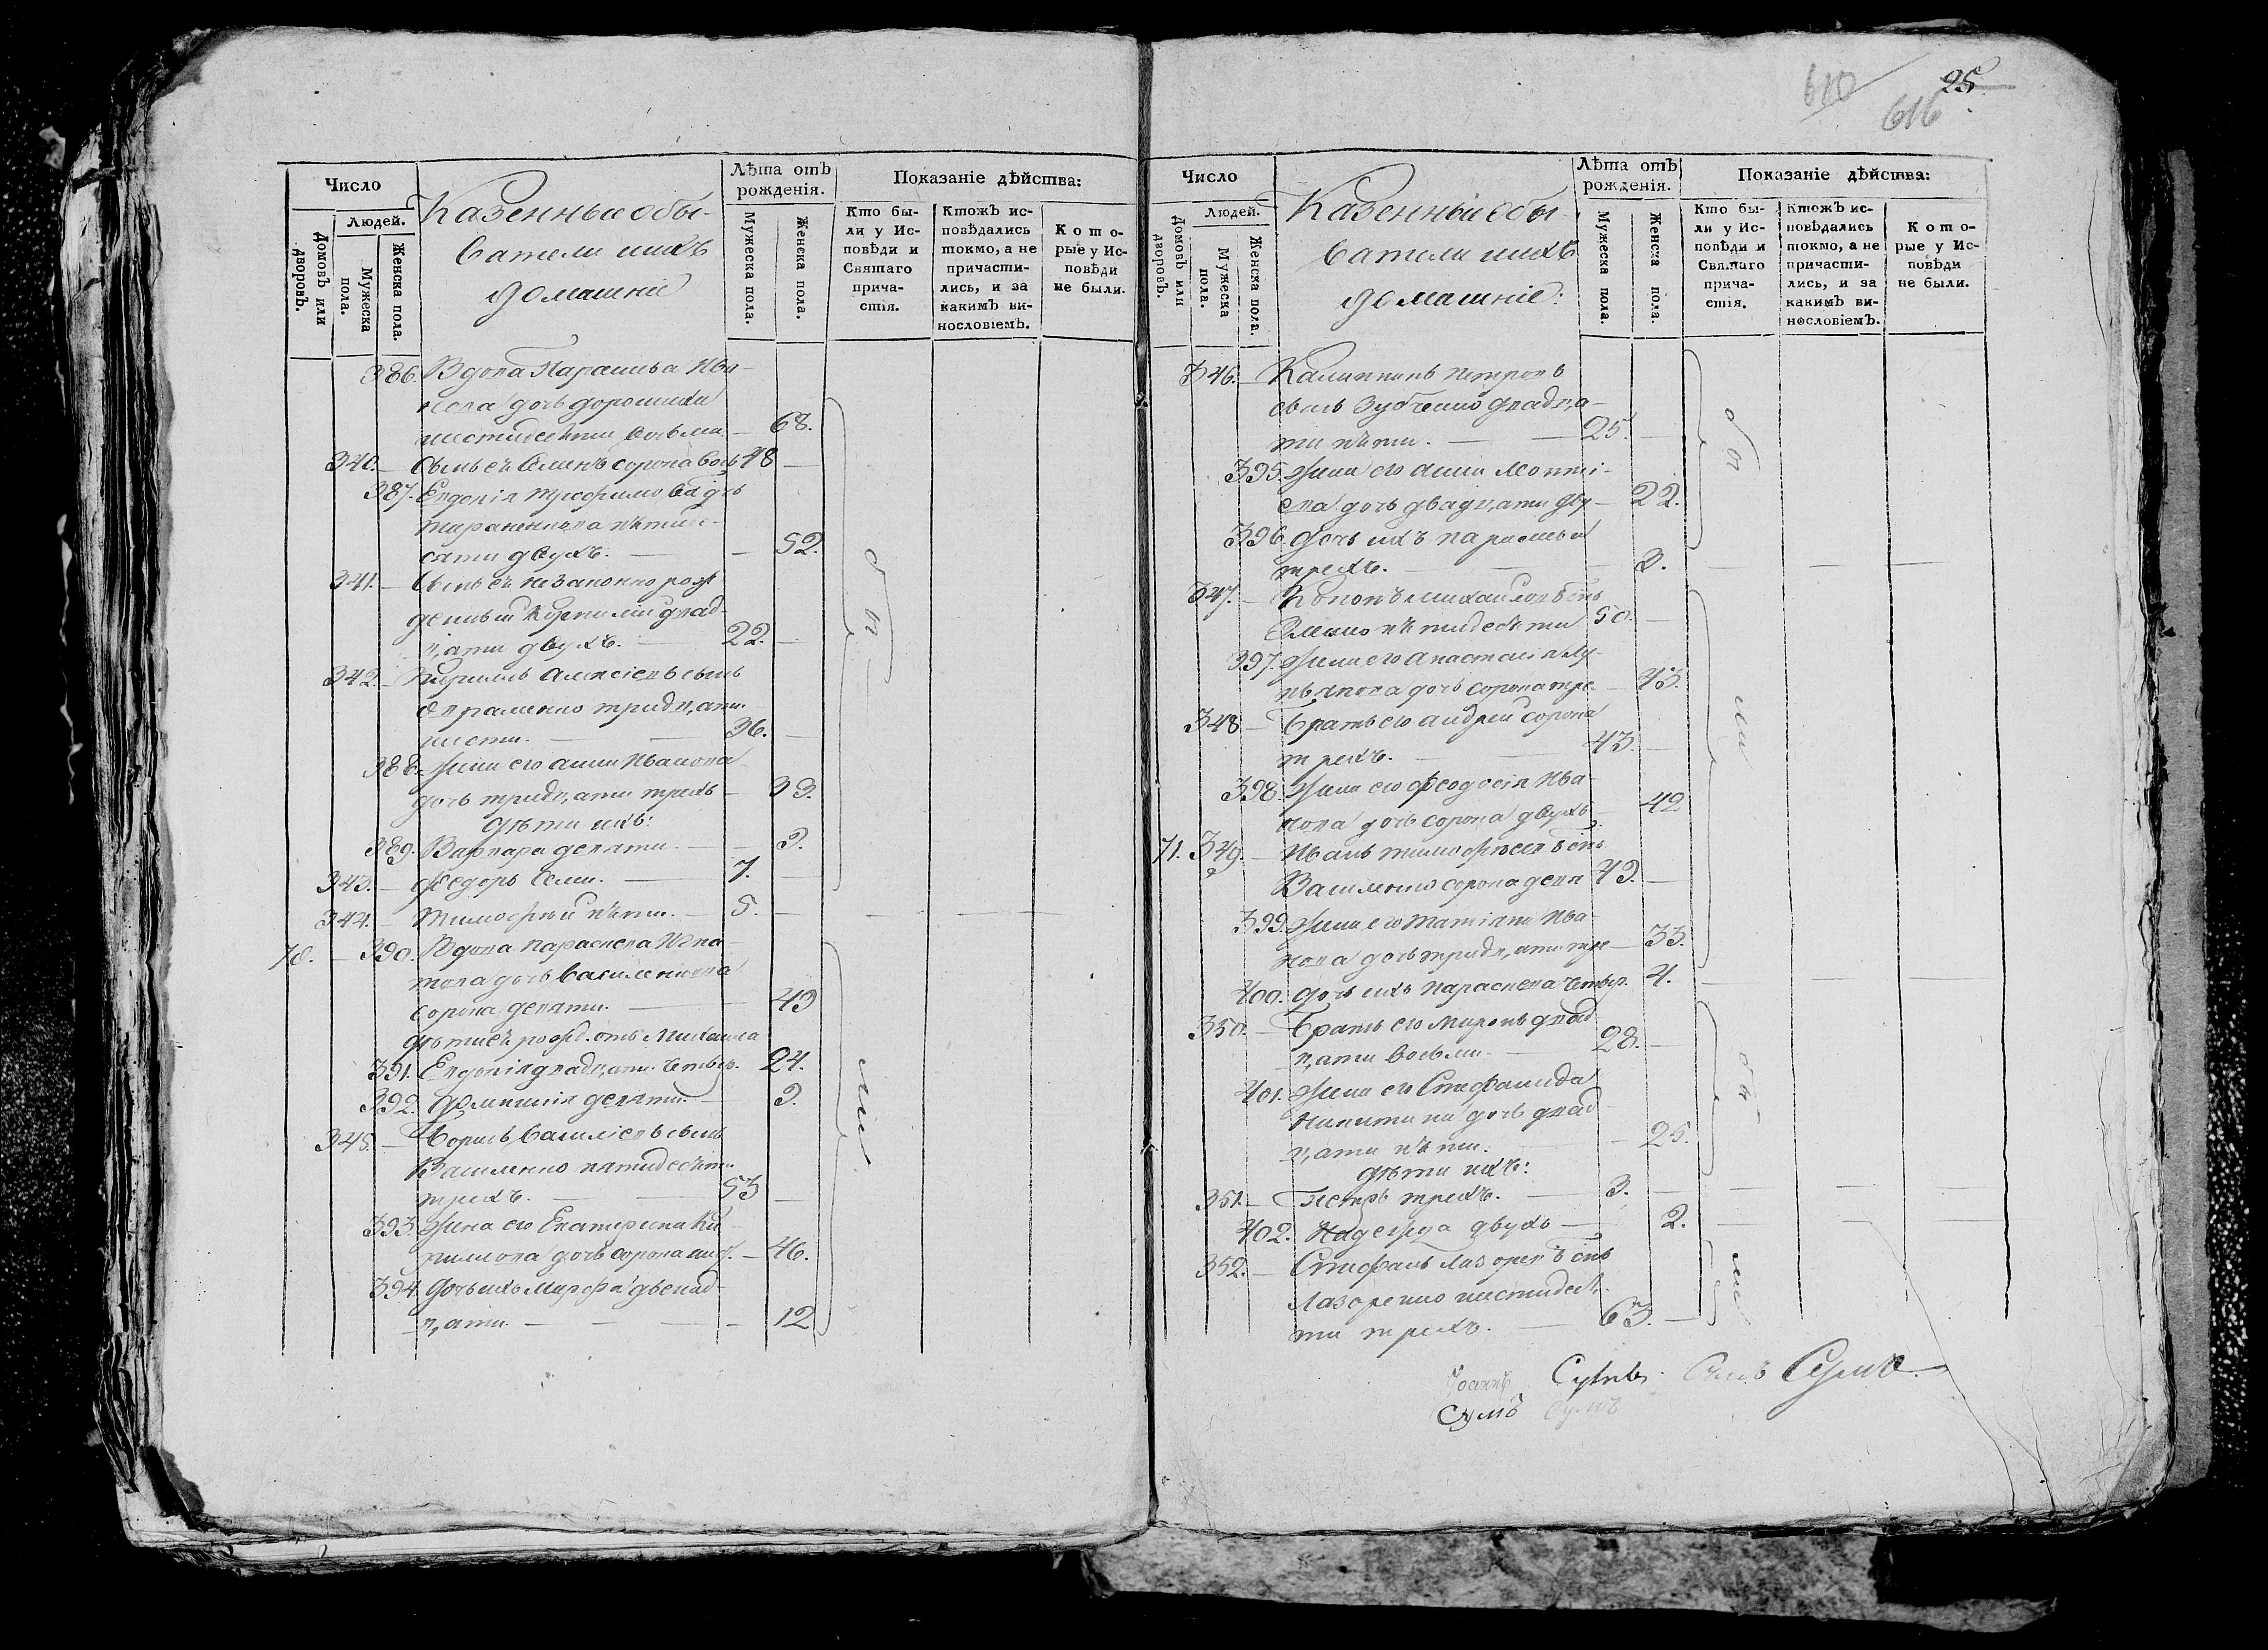 610
616
25
Число
Людей.
Домовъ или дворовъ.
Мужеска пола.
Женска пола.
Казенныи обы-
ватели и ихъ
домашніе
Лѣта отъ
рожденія.
Мужеска пола.
Женска пола.
Показаніе дѣйства:
Кто бы-
ли у Ис-
повѣди и
Святаго
прича-
стія.
Ктожъ ис-
повѣдались
токмо, а не
причасти-
лись, и за
какимъ ви-
нословіемъ.
Кото-
рые у Ис-
повѣди
не были.
386. Вдова Парасковія Ива-
нова дочь
шестидесяти восьми 68.
340. Сынъ еѣ Семенъ сорока вось 48
387. Евдокія Трофимова дчь
пятиде-
сяти двухъ. 52.
341. Сынъ еѣ незаконно рож
денный двад-
цати двухъ. 22.
342. Кирилъ Алексіевъ сынъ
тридцати
шести. 36.
388. Жена его Анна Иванова
дочь тридцати трехъ 33.
Дѣти ихъ:
389. Варвара девяти. 9.
343. Феодоръ семи. 7.
344. Тимофѣй пѣти. 5.
70. 390. Вдова Параскева Игна-
това дочь Василенкова
сорока девяти. 49
Дѣти еѣ рожд. отъ Михаила
391. Евдокія двадцати четыр. 24.
392. Домникія девяти. 9.
345. Борисъ Василіевъ сынъ
Василенко пятидесѣти
трехъ. 53
393. Жена его Екатерина Ки-
рилова дочь сорока шес. 46.
394. Дочь ихъ Марфа двенад-
цати. 12
были
Число
Людей.
Домовъ или дворовъ.
Мужеска пола.
Женска пола.
Казенныи обы-
ватели и ихъ
домашніе:
Лѣта отъ
рожденія.
Мужеска пола.
Женска пола.
Показаніе дѣйства:
Кто бы-
ли у Ис-
повѣди и
Святаго
прича-
стія.
Ктожъ ис-
повѣдались
токмо, а не
причасти-
лись, и за
какимъ ви-
нословіемъ.
Кото-
рые у Ис-
повѣди
не были.
346. Калинникъ Петровъ
сынъ Зубченко двадца-
ти пѣти. 25.
395. Жена его Анна Леонті-
ева дочь двадцати дву 22.
396. Дочь ихъ
трехъ. 3.
347. Кононъ Михаиловъ снъ
пѣтидесѣти 50.
397. Жена его Анастасія Лу-
кьянова дочь сорока тре 43.
348 Братъ его Андрей сорока
трехъ. 43.
398. Жена его Феодосія Ива-
нова дочь сорока двухъ 42
71. 349. Иванъ Тимофѣевъ снъ
Василенко сорока девя 49.
399. Жена его Татіяна Ива-
нова дочь тридцати тре 33.
400. Дочь ихъ Параскева четыр. 4.
350. Братъ его Миронъ двад
цати восьми. 28.
401. Жена его Стефанида
Никитина дочь двад-
цати пѣти. 25.
Дѣти ихъ:
351. Петръ трехъ. 3.
402. Надежда двухъ 2.
352. Стефанъ Лазоревъ снъ
Лазоренко шестидесѣ-
ти трехъ. 63.
были
Іоаннъ